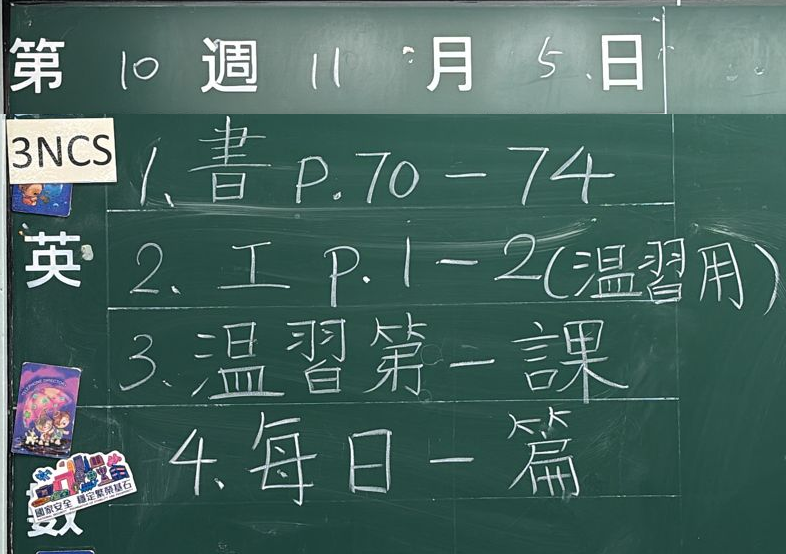 第 10 週 11 月 5 日
3NCS
1. 書 P.70 - 74
英
2. 工 P.1 - 2 (温習用)
3. 温習第一課
4. 每日一篇
國家安全 穩定繁榮基石
數